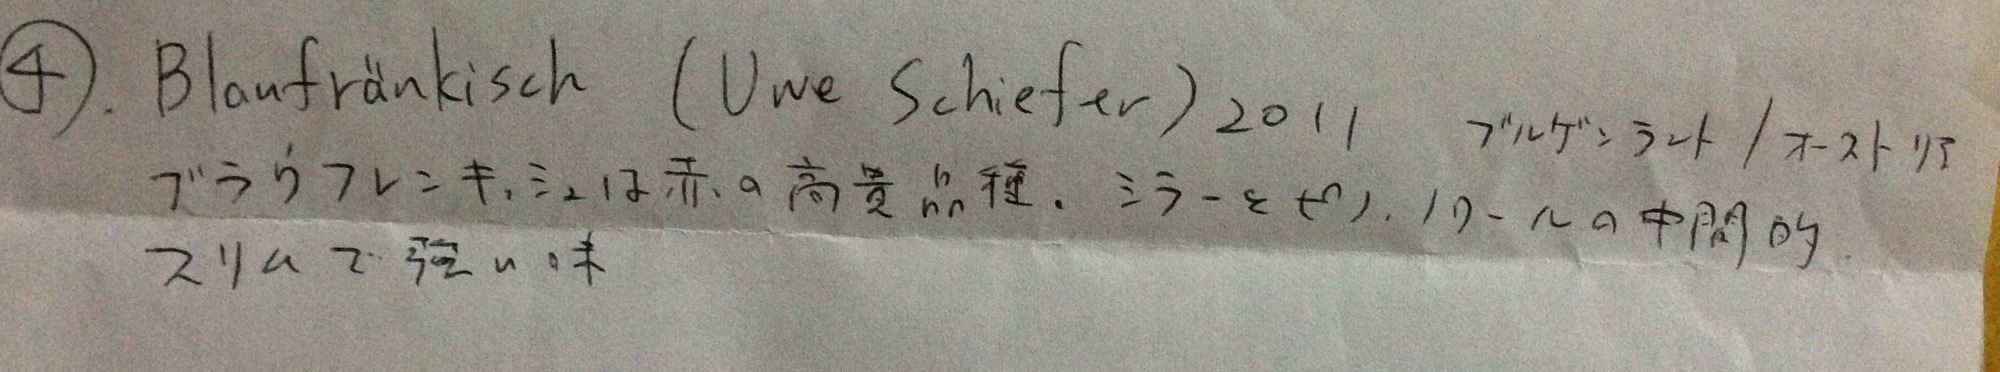 ④. Blaufränkisch (Uwe Schiefer) 2011 ブルゲンラント / オーストリア
ブラウフレンキッシュは赤の高貴品種. シラーとピノ.ノワールの中間的.
スリムで強い味